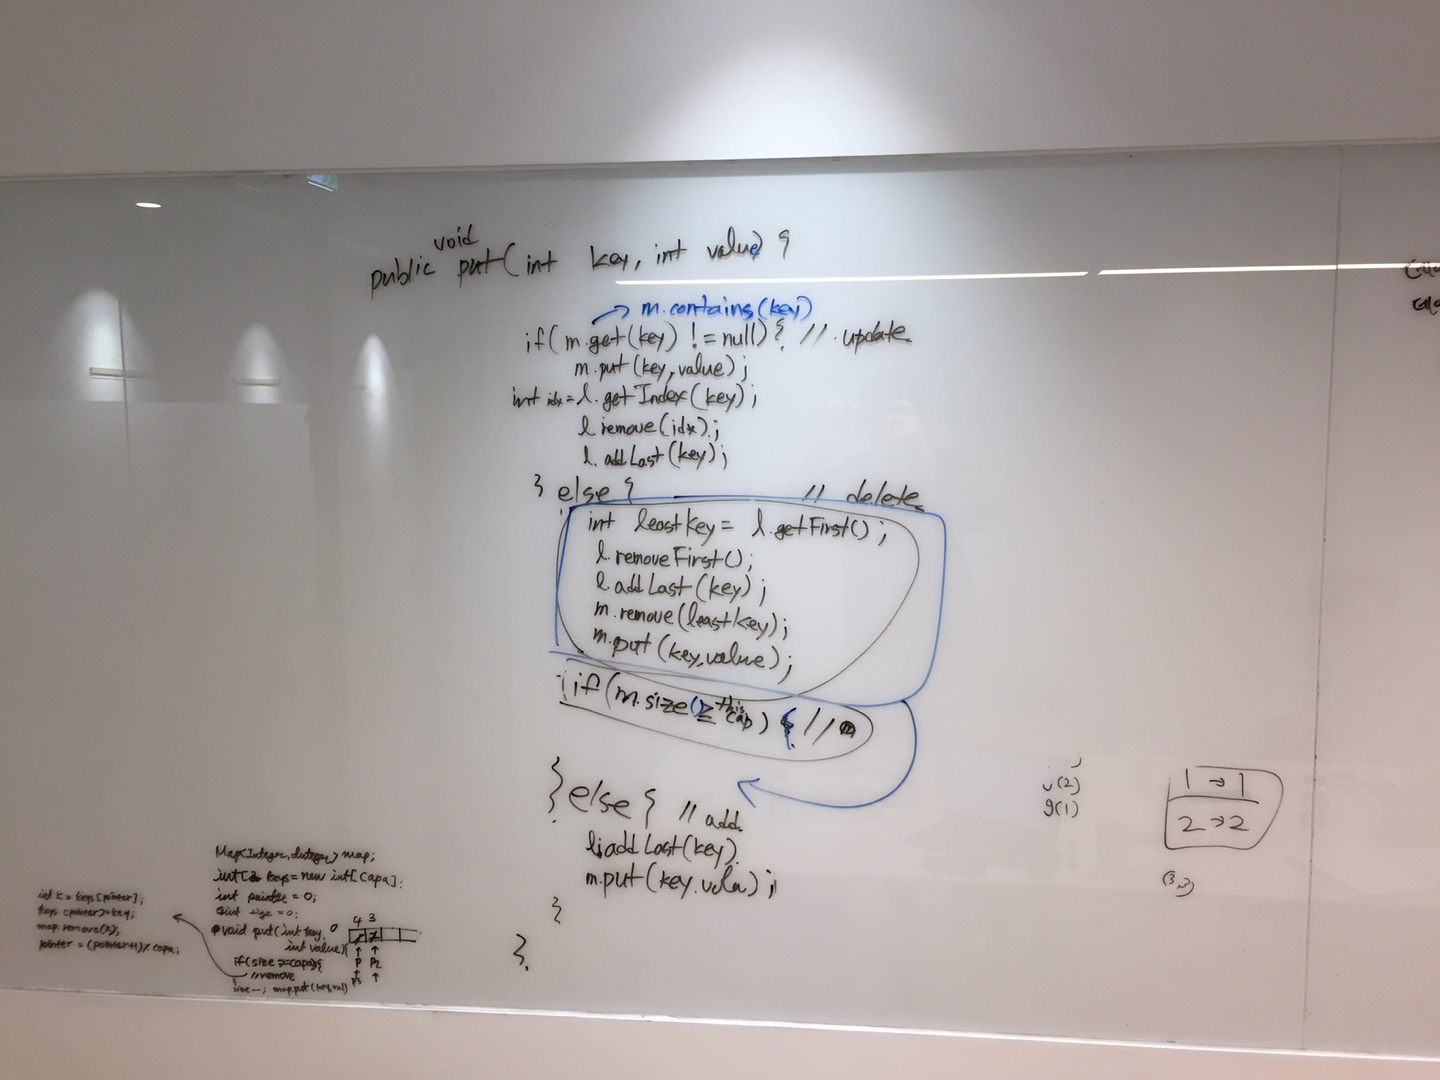 void
public put(int key, int value) {
m.contains(key)
if(m.get(key) != null) { // update
m.put(key, value);
int idx = l.getIndex(key);
l.remove(idx);
l.addLast(key);
} else { // delete
int leastkey = l.getFirst();
l.removeFirst();
l.addLast(key);
m.remove(leastkey);
m.put(key, value);
if(m.size() ≥ this cap) { //
} else { // add
l.addLast(key)
m.put(key.
}
}.
Map<Integer, Integer> map;
keys = new int[capa];
int pointer = 0;
int size = 0;
void put(int key,
int value){
if(size >=capa){
//remove
size--; map.put(key,val)
4 3
P P2
P3
int k = keys[pointer];
keys[pointer]=key;
map.remove(k);
pointer = (pointer+1)% capa;
g(1)
1 → 1
2 → 2